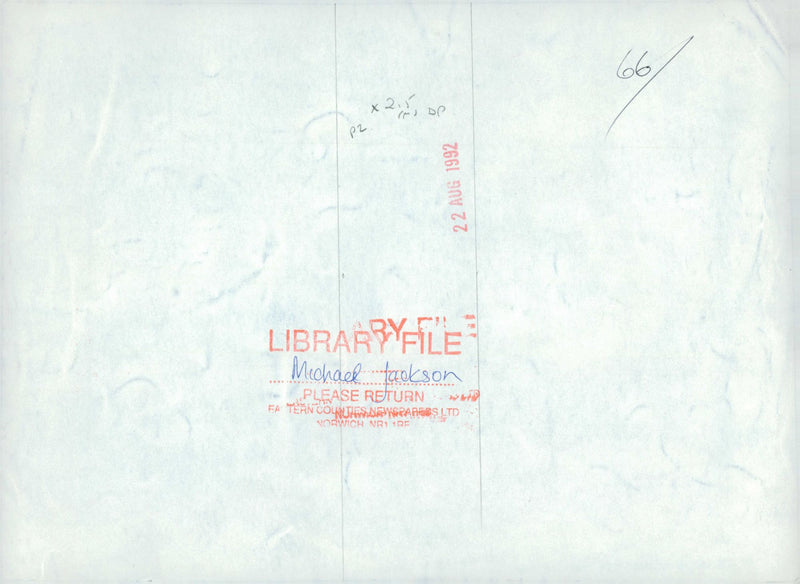 66/
x 2.5
P2
DP
22 AUG 1992
ARY FILE
LIBRARY FILE
Michael Jackson
PLEASE RETURN
EASTERN COUNTIES NEWSPAPERS LTD
NORWICH NR1 1RE